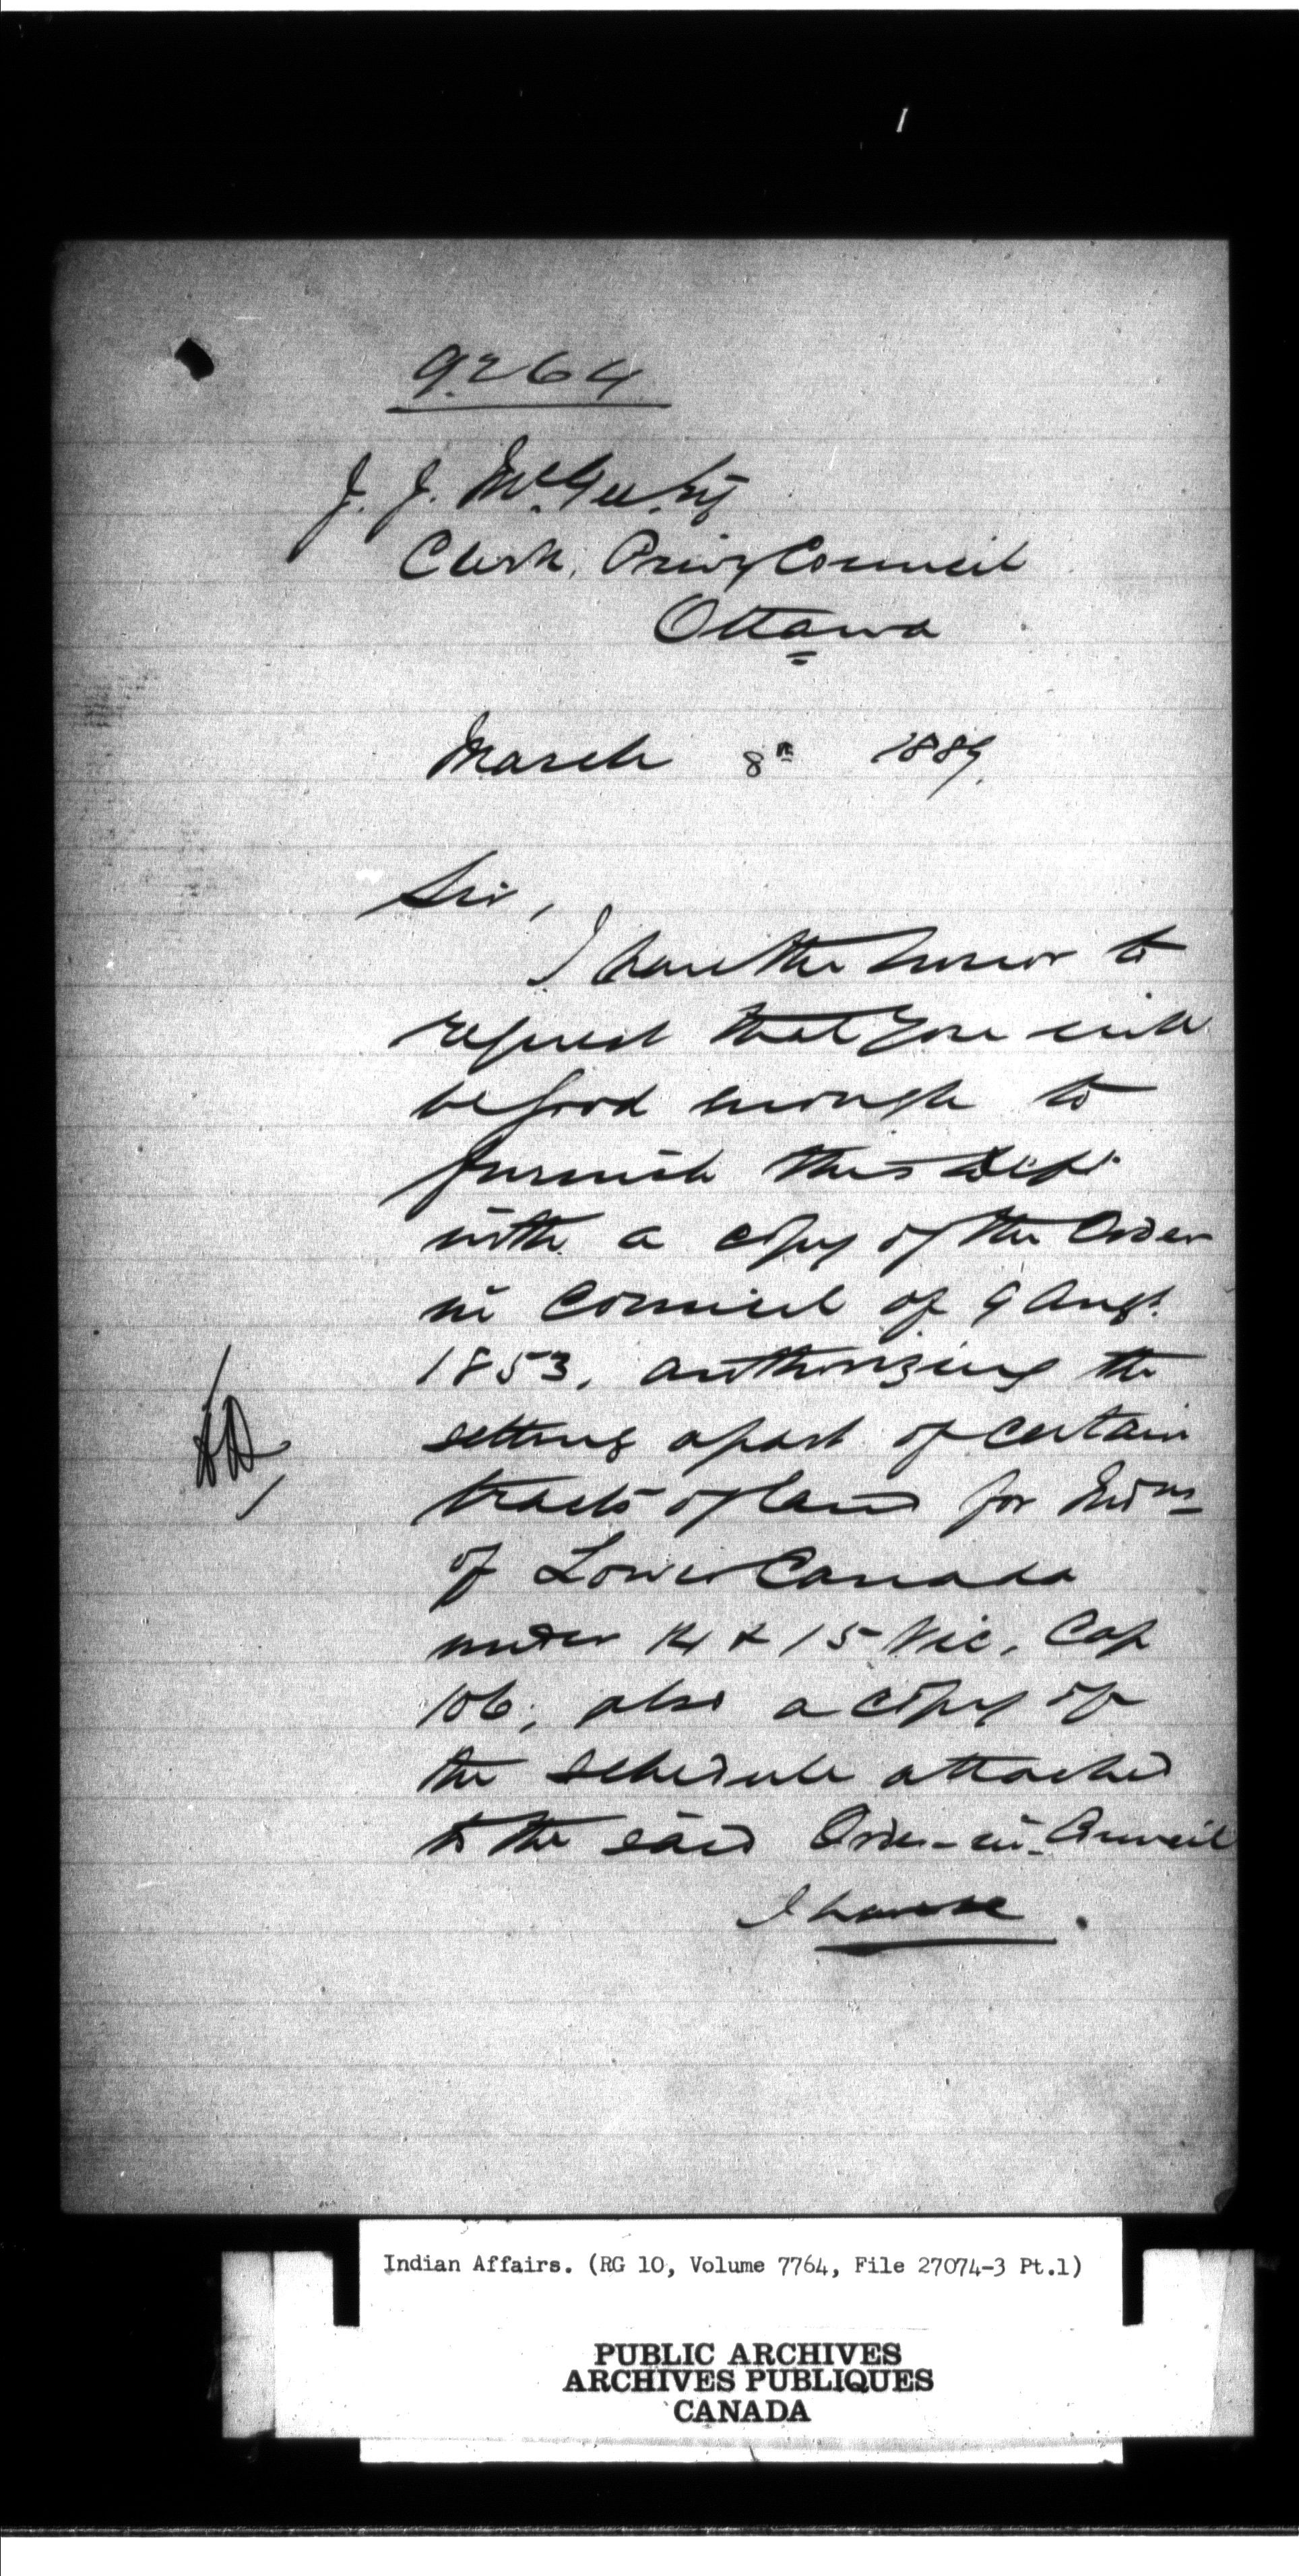 9264
J. J. McGee, Esq
Clerk, Privy Council
Ottawa
March 8th 1889.
Sir,
I have the honor to
request that you will
be good enough to
furnish this Dept.
with a copy of the Order
in Council of 9 Augt.
1853, authorizing the
setting apart of certain
tracts of land for Indns
of Lower Canada
under 14 & 15 Vic, Cap
106; also a copy of
the schedule attached
to the said Order-in-Council
I have
Indian Affairs. (RG 10, Volume 7764, File 27074-3 Pt.1)
PUBLIC ARCHIVES
ARCHIVES PUBLIQUES
CANADA